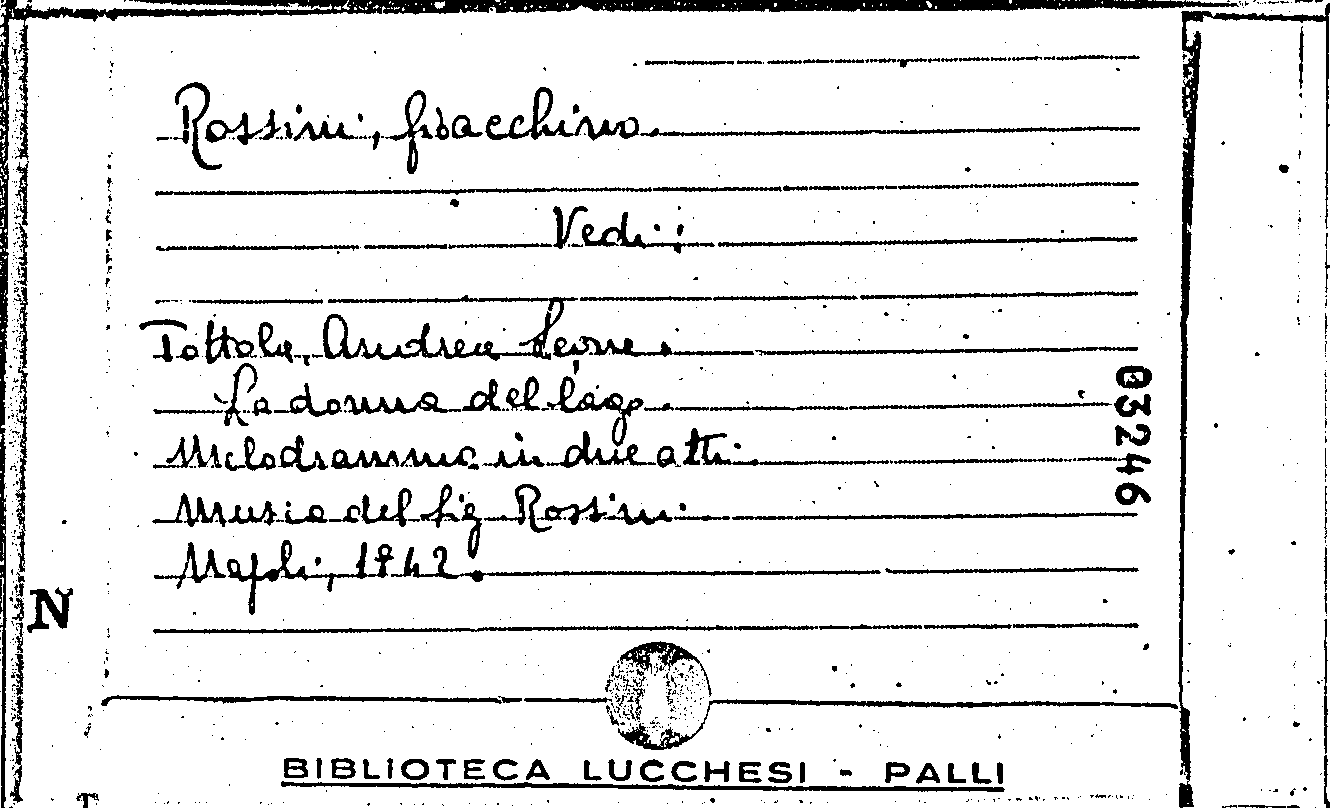 Rossini, Gioacchino.
Vedi:
Tottola, Andrea Leone.
La donna del lago.
Melodramma in due atti.
Musica del Sig Rossini.
Napoli, 1842.
03246
N
BIBLIOTECA LUCCHESI - PALLI